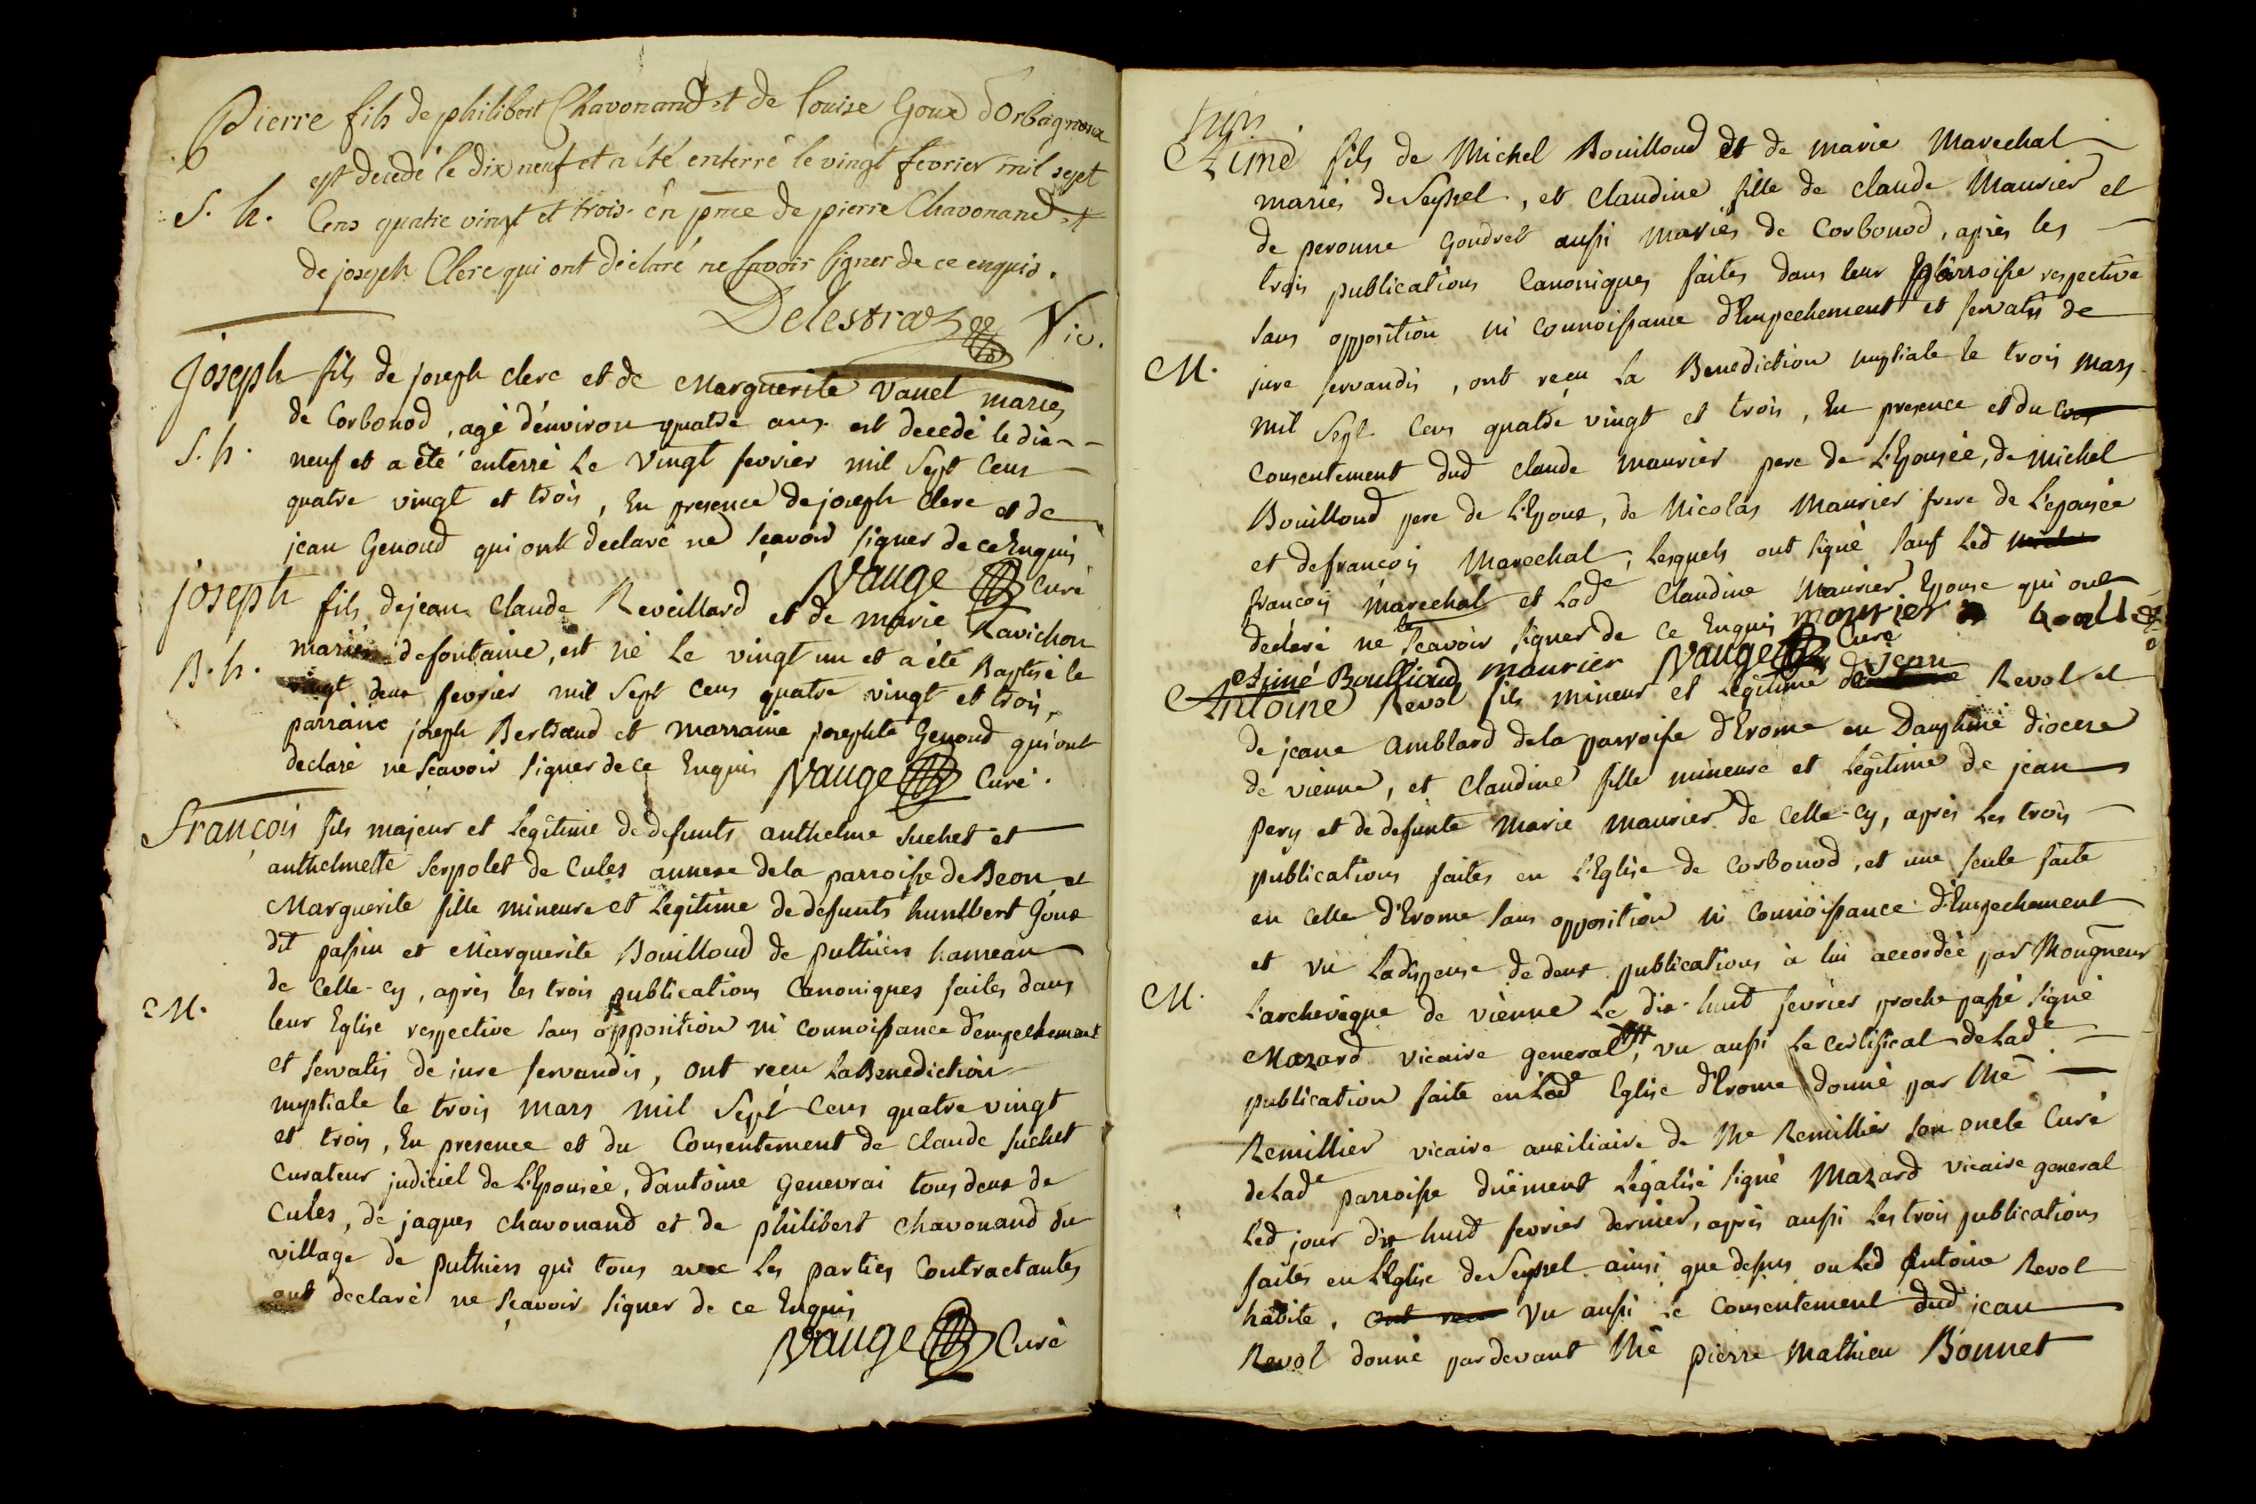 Pierre fils de philibert Chavonand et de louise Goux d'Orbagnoux
est decedé le dix neuf et a été enterré le vingt fevrier mil sept
S. h. Cens quatre vingt et trois. en pnce de pierre Chavonand et
de joseph Clerc qui ont déclaré ne savoir signer de ce enquis.
Delestraz Vic.
joseph fils de joseph clerc et de Marguerite Vanel mariés
de Corbonod, agé d'environ quatre ans est decedé le dix-
S. h. neuf et a été enterré Le vingt fevrier mil Sept Cens
quatre vingt et trois, En presence de joseph Clerc et de
jean Genoud qui ont declaré ne sçavoir signer de ce Enquis
Nauge Curé
joseph fils de jean Claude Reveillard et de marie Ravichon
mariés de fontaine, est né Le vingt un et a été Baptisé le
B. h. vingt deux fevrier mil Sept Cens quatre vingt et trois,
parrain joseph Bertrand et marraine josephte Genoud qui ont
declaré ne sçavoir signer de ce Enquis Nauge Curé.
François fils majeur et Legitime de defunts anthelme Suchet et
anthelmette Serpolet de Cules annexe de la parroisse de Beon, et
Marguerite fille mineure et Legitime de defunts humbert Goux
dit passin et Marguerite Bouilloud de puthiers hameau
de Celle-cy, après les trois publications Canoniques faites dans
M. leur Eglise respective sans opposition ni connoissance d'empechement
et servatis de jure servandis, ont reçu La Benediction
nuptiale le trois mars mil Sept Cens quatre vingt
et trois, En presence et du Consentement de Claude Suchet
Curateur judiciel de L'Epousée, d'antoine Genevrai tous deux de
Cules, de jaques Chavonand et de philibert Chavonand du
village de puthiers qui tous avec Les parties Contractantes
ont declaré ne sçavoir signer de ce Enquis
Nauge Curé
Aimé fils de Michel Bouilloud et de marie Marechal
mariés de Seyssel, et Claudine fille de claude Maurier et
de peronne Goudret aussi mariés de Corbonod, après les
trois publications Canoniques faites dans leur parroisse respective
sans opposition ni connoissance d'Empechement et servatis de
M. jure servandis, ont reçu La Benediction nuptiale le trois mars
mil Sept Cens quatre vingt et trois, En presence et du
Consentement dud claude maurier pere de L'Epousée, de michel
Bouilloud pere de L'Epoux, de Nicolas Maurier frere de L'epousée
et de françois Marechal, Lesquels ont signé sauf Led
françois marechal et Lade Claudine Maurier Epouse qui ont
declaré ne le sçavoir signer de ce Enquis mourier
Aimé Boullioud maurier Nauge Curé
Antoine Revol fils mineur et Legitime de jean Revol et
de jeane Amblard de la parroisse d'Erome en Dauphiné diocese
de vienne, et Claudine fille mineure et Legitime de jean
Pery et de defunte Marie maurier de Celle-cy, après Les trois
publications faites en L'Eglise de Corbonod, et une seule faite
en Celle d'Erome sans opposition ni Connoissance d'Empechement
et vu La dispense de deux publications à lui accordée par Mongneur
M. L'archevêque de vienne Le dix-huit fevrier proche passé signé
Mazard vicaire general, vu aussi Le Certificat de Lade
publication faite en Lade Eglise d'Erome donné par Me
Remillier vicaire auxiliaire de Me Remillier son oncle Curé
de Lade parroisse düement Légalisé signé Mazard vicaire general
Led jour dix huit fevrier dernier, après aussi Les trois publications
faites en L'Eglise de Seyssel ainsi que dessus ou Led Antoine Revol
habite, ont reçu vu aussi Le Consentement dud jean
Revol donné par devant Me pierre Mathieu Bonnet